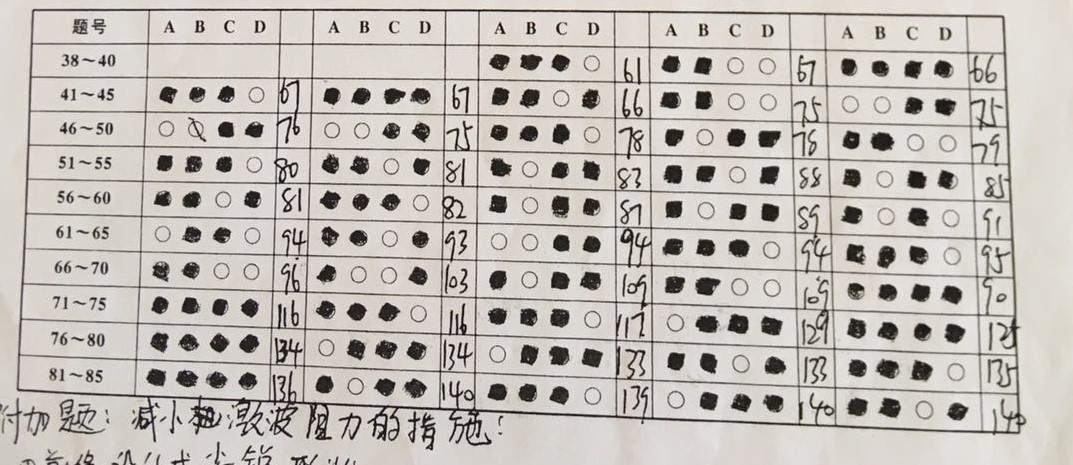 题号 A B C D A B C D A B C D A B C D A B C D
38～40 61 67 66
41～45 67 67 66 75 75
46～50 76 75 78 78 79
51～55 80 81 83 88 85
56～60 81 82 87 89 91
61～65 94 93 94 94 95
66～70 96 103 109 109 90
71～75 116 116 117 129 125
76～80 134 134 133 133 135
81～85 136 140 139 140 140
附加题：减小激波阻力的措施：